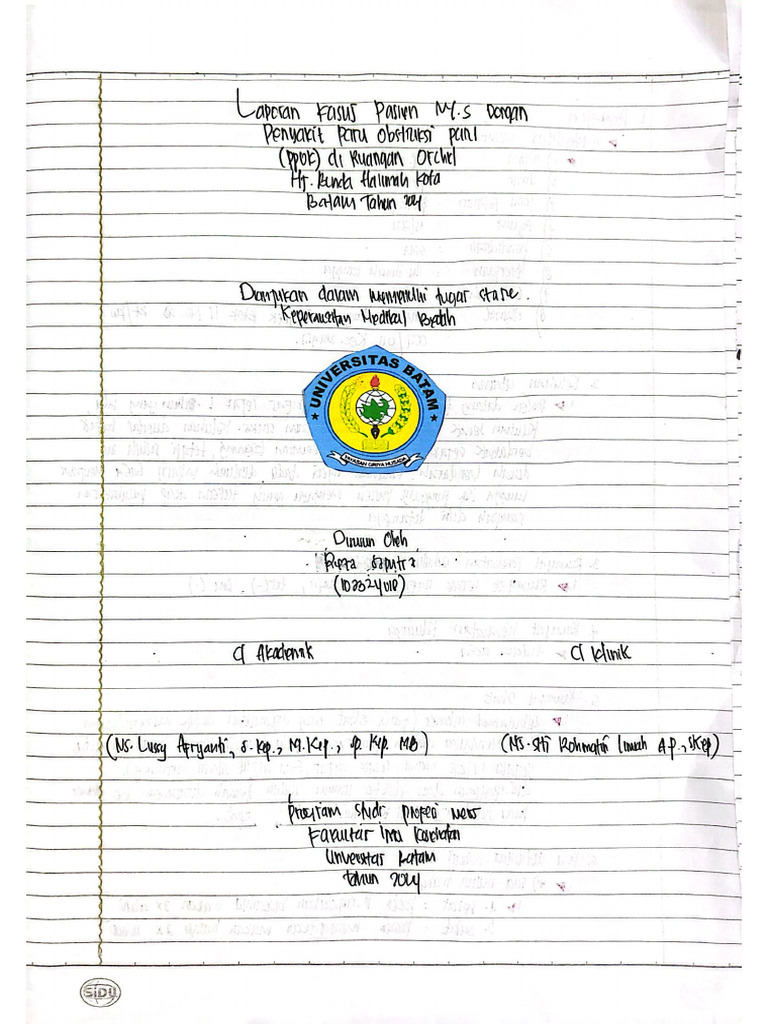 Laporan Kasus Pasien Ny.S Dengan
Penyakit Paru Obstruksi paru
(ppok) di Ruangan Orchid
Hj. Bunda Halimah Kota
Batam Tahun 2024
Diajukan dalam memenuhi tugas stase
Keperawatan Medikal Bedah
UNIVERSITAS BATAM
YAYASAN GRIYA HUSADA
Disusun Oleh
Reza Saputra
CI Akademik CI Klinik
(Ns. Lussy Afryanti, S.Kep., M.Kep., Sp. Kep. MB) (Ns. Siti Rohmatin A.P., SKep)
program studi profesi ners
Fakultas Ilmu Kesehatan
Universitas Batam
tahun 2024
SIDU